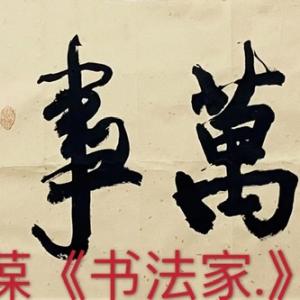 萬事
葆《书法家.》